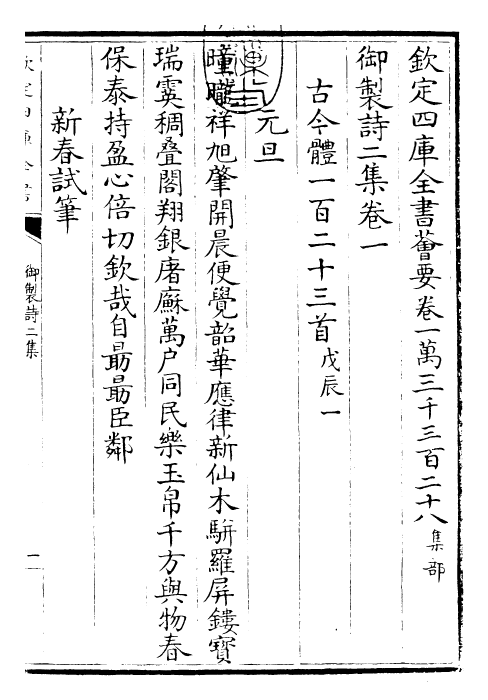 欽定四庫全書薈要卷一萬三千三百二十八 集部
御製詩二集卷一
古今體一百二十三首 戊辰一
元旦
曈曨祥旭肇開晨便覺韶華應律新仙木駢羅屏鏤寶
瑞霙稠疊閣翔銀屠蘇萬户同民樂玉帛千方與物春
保泰持盈心倍切欽哉自勗勗臣鄰
新春試筆
御製詩二集
一